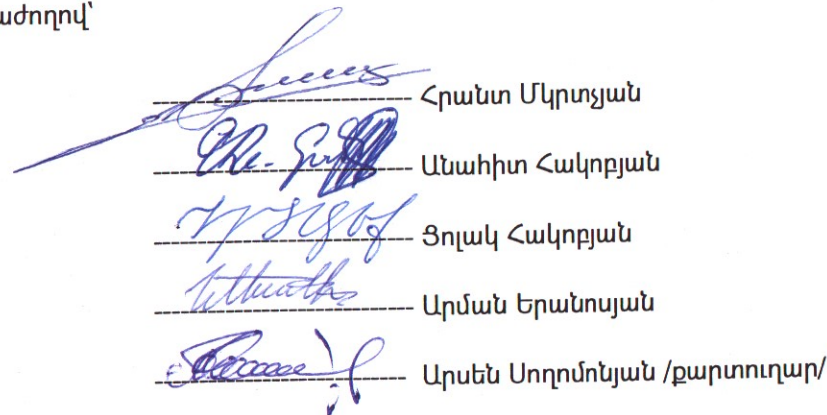 աժողով՝
Հրանտ Մկրտչյան
Անահիտ Հակոբյան
Ցոլակ Հակոբյան
Արման Երանոսյան
Արսեն Սողոմոնյան /քարտուղար/